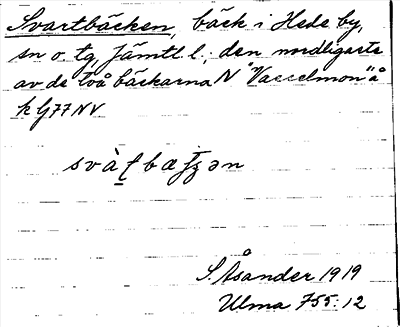 Svartbäcken, bäck i Hede by,
sn o. tg, Jämtl. l.; den nordligaste
av de två bäckarna N "Vasselmon" å
k G77 NV
S. Åsander 1919
Ulma 755:12